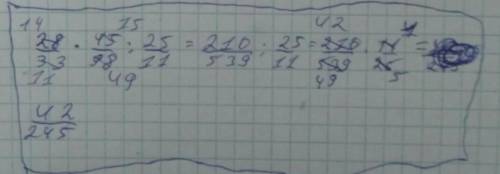 14 15 42
28/33 · 45/98 : 25/11 = 210/539 : 25/11 = 210/539 · 11/25 =
11 49 49 5
42/245